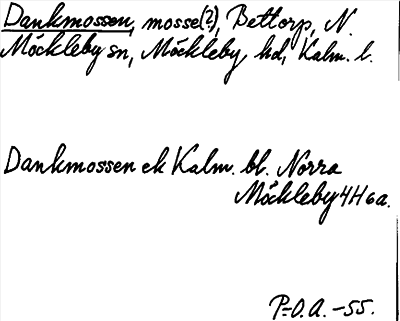 Dankmossen, mosse(?), Bettorp, N.
Möckleby sn, Möckleby hd, Kalm. l.
Dankmossen ek Kalm. bl. Norra
Möckleby 4H6a.
P=O.A. -55.